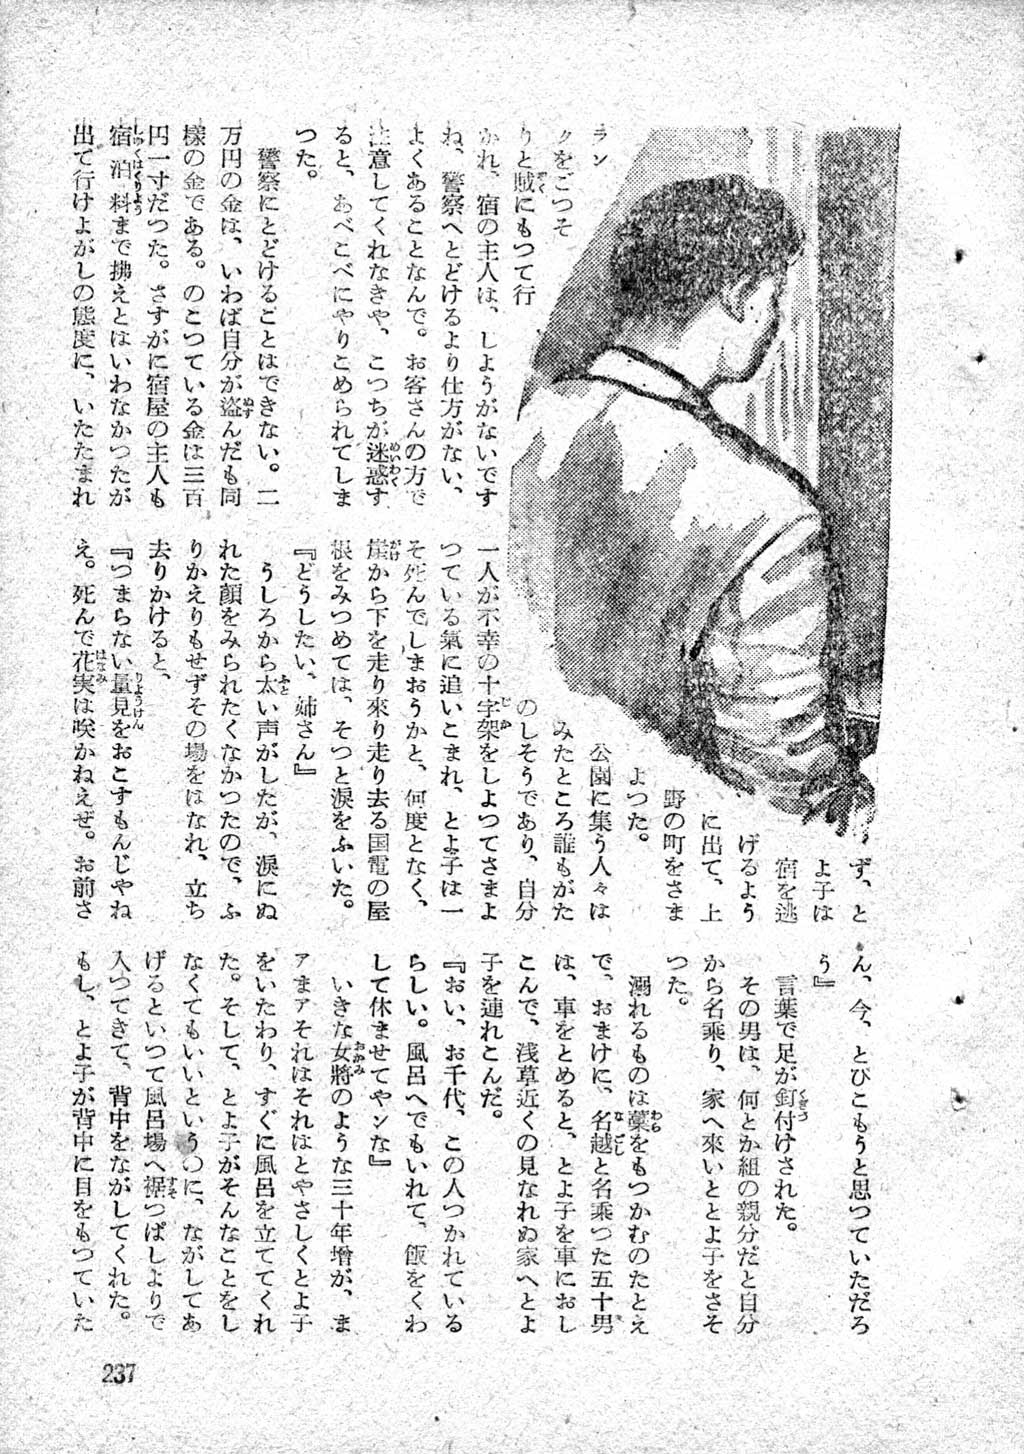 ラン
クをごつそ
りと賊にもつて行
かれ、宿の主人は、しようがないです
ね、警察へとどけるより仕方がない、
よくあることなんで。お客さんの方で
注意してくれなきや、こつちが迷惑す
ると、あべこべにやりこめられてしま
つた。
警察にとどけることはできない。二
万円の金は、いわば自分が盗んだも同
様の金である。のこつている金は三百
円一寸だつた。さすがに宿屋の主人も
宿泊料まで拂えとはいわなかつたが
出て行けよがしの態度に、いたたまれ
ず、と
よ子は
宿を逃
げるよう
に出て、上
野の町をさま
よつた。
公園に集う人々は
みたところ誰もがた
のしそうであり、自分
一人が不幸の十字架をしよつてさまよ
つている氣に追いこまれ、とよ子は一
そ死んでしまおうかと、何度となく、
崖から下を走り來り走り去る国電の屋
根をみつめては、そつと涙をふいた。
『どうしたい、姉さん』
うしろから太い声がしたが、涙にぬ
れた顔をみられたくなかつたので、ふ
りかえりもせずその場をはなれ、立ち
去りかけると、
『つまらない量見をおこすもんじやね
え。死んで花実は咲かねえぜ。お前さ
ん、今、とびこもうと思つていただろ
う』
言葉で足が釘付けされた。
その男は、何とか組の親分だと自分
から名乘り、家へ來いととよ子をさそ
つた。
溺れるものは藁をもつかむのたとえ
で、おまけに、名越と名乘つた五十男
は、車をとめると、とよ子を車におし
こんで、浅草近くの見なれぬ家へとよ
子を連れこんだ。
『おい、お千代、この人つかれている
らしい。風呂へでもいれて、飯をくわ
して休ませてやンな』
いきな女將のような三十年増が、ま
アまアそれはそれはとやさしくとよ子
をいたわり、すぐに風呂を立ててくれ
た。そして、とよ子がそんなことをし
なくてもいいというのに、ながしてあ
げるといつて風呂場へ裾つぱしよりで
入つてきて、背中をながしてくれた。
もし、とよ子が背中に目をもつていた
237